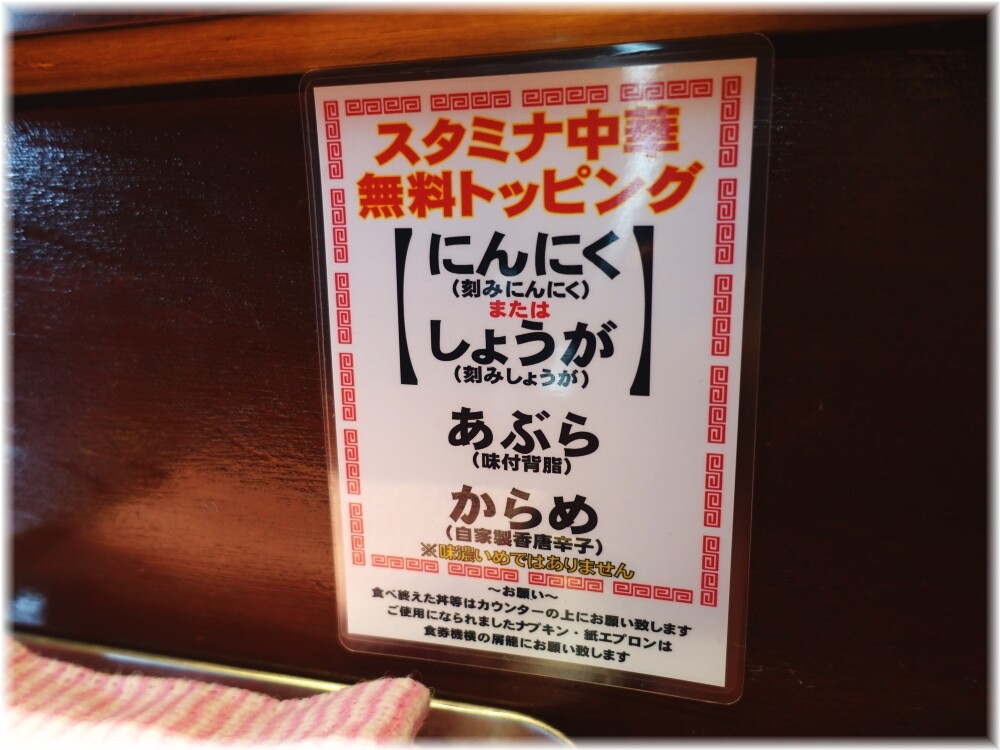 スタミナ中華
無料トッピング
【にんにく
(刻みにんにく)
または
しょうが
(刻みしょうが)】
あぶら
(味付背脂)
からめ
(自家製香唐辛子)
※味濃いめではありません
～お願い～
食べ終えた丼等はカウンターの上にお願い致します
ご使用になられましたナプキン・紙エプロンは
食券機横の屑籠にお願い致します